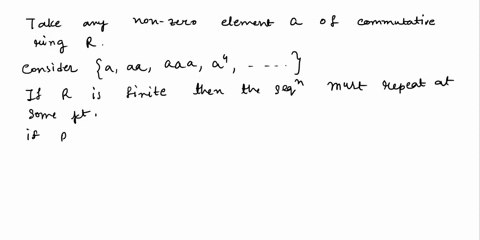 Take any non-zero element a of commutative
ring R.
Consider {a, aa, aaa, a⁴, - - - - }
If R is finite then the seqⁿ must repeat at
some pt.
if p